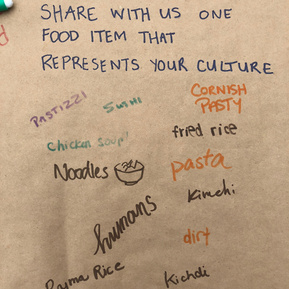 SHARE WITH US ONE
FOOD ITEM THAT
REPRESENTS YOUR CULTURE
PASTIZZI
SUSHI
CORNISH
PASTY
fried rice
Chicken Soup!
Noodles
pasta
Kimchi
humans
dirt
Rice
Kichdi